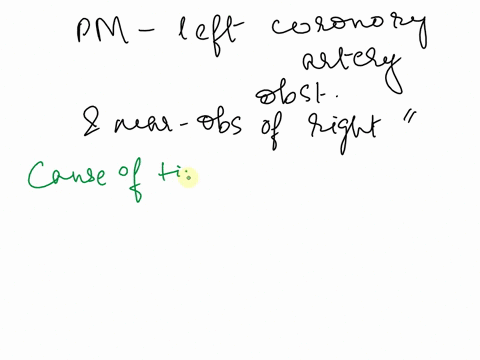 PM - left coronory
artery
obst.
& near-obs of right "
Cause of ti